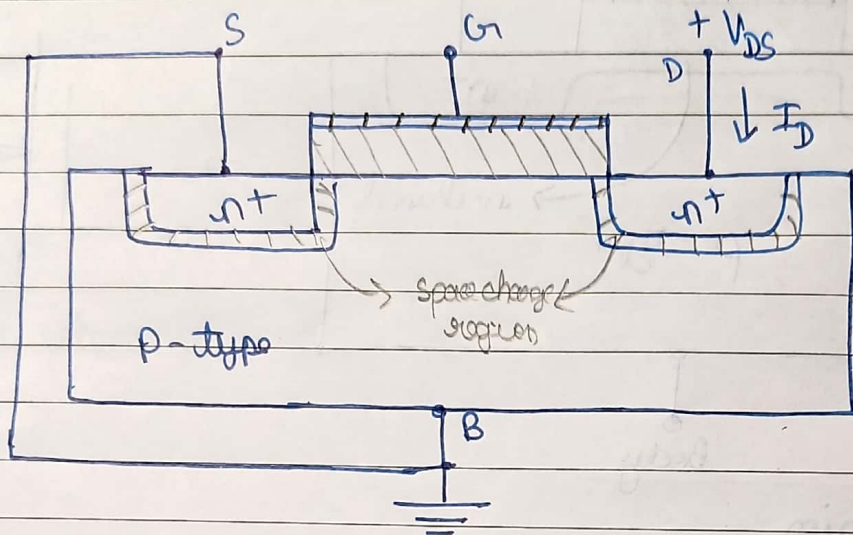 S
G
+ V_DS
D
I_D
n+
n+
space charge
region
p-type
B
Body